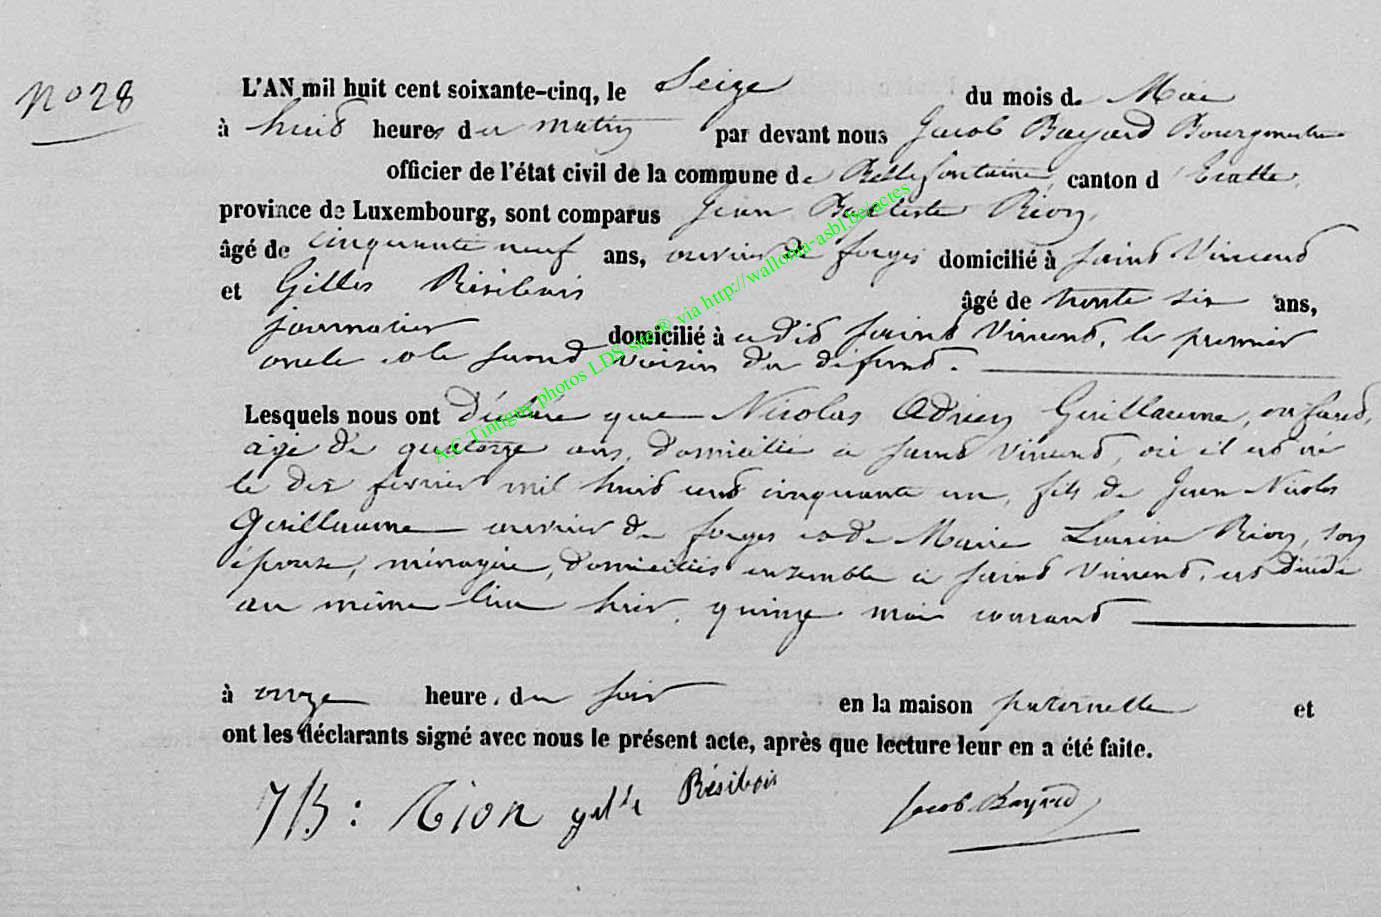 No 28
L'AN mil huit cent soixante-cinq, le Seize du mois de Mai
à huit heures du matin par devant nous Jacob Bayard Bourgmestre
officier de l'état civil de la commune de Bellefontaine, canton d'Etalle,
province de Luxembourg, sont comparus Jean Baptiste Rion,
âgé de cinquante neuf ans, ouvrier de forges domicilié à Saint Vincent
et Gilles Résibois âgé de trente six ans,
journalier domicilié à udit Saint Vincent, le premier
oncle et le second voisin du défunt.
Lesquels nous ont déclaré que Nicolas Adrien Guillaume, enfant,
âgé de quatorze ans, domicilié à Saint Vincent, où il est né
le dix février mil huit cent cinquante un, fils de Jean Nicolas
Guillaume ouvrier de forges et de Marie Louise Rion, son
épouse, ménagère, domiciliés ensemble à Saint Vincent, est décédé
au même lieu hier, quinze mai courant
à onze heures du soir en la maison paternelle et
ont les déclarants signé avec nous le présent acte, après que lecture leur en a été faite.
J/B: Rion Résibois Jacob Bayard
A.C Tintigny photos LDS site ® via http://wallonia-asbl.be/actes